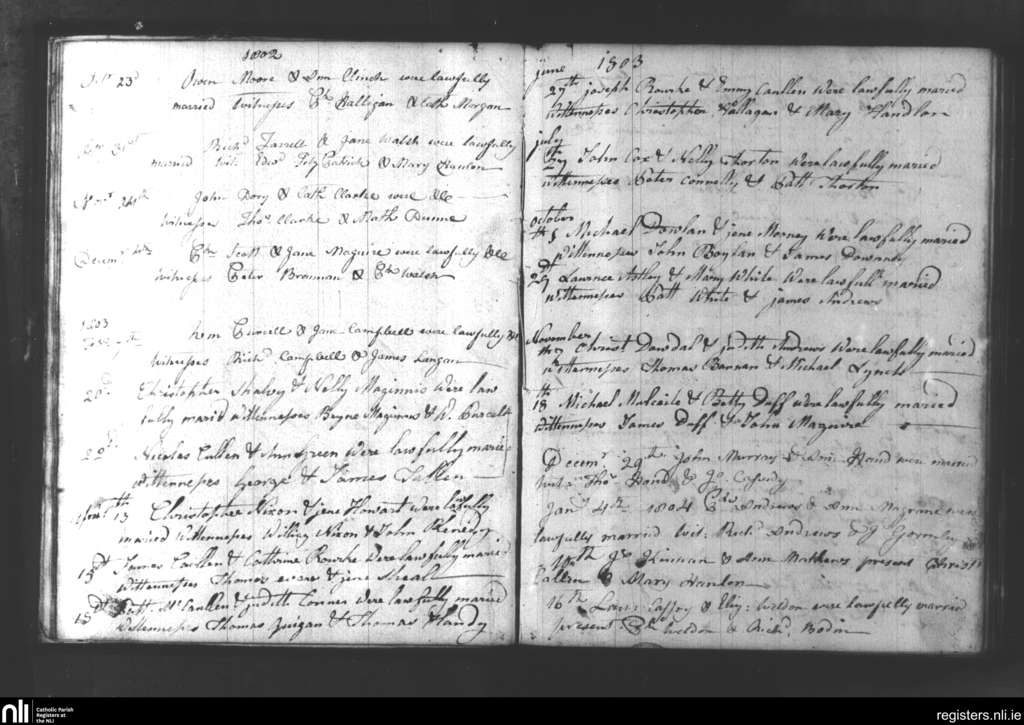 1802
23d Owen Moore & Ann Clinch were lawfully
married Witnesses Halligan & Cath Morgan
Richd Farrell & Jane Walsh were lawfully
married Wit. Edwd Fitz Patrick & Mary
John Dory & Cath Clarke were &c
Witnesses Thos Clarke & Math Dunne
Decemr Scott & Jane Maguire were lawfully &c
Witnesses Peter Brannan & Walsh
1803
Purcell & Jane Campbell were lawfully &c
Witnesses Richd Campbell & James Langan
20th Christopher & Nelly Maginnis Were law
fully maried wittennesses Bryne Maginnis & Purcell
22d Nicolas Cullen & Ann Green Were lawfully maried
Wittennesses George & James Tallen
13th Christopher Nixon & Jene Were lawfully
maried Wittennesses William Nixon & John Kenedy
15th James Caullen & Catterine Rourke Were lawfully maried
Wittennesses Thomas & jene Sheal
15th Patt McCaullen & Judith Connor Were lawfully maried
Wittennesses Thomas Guigan & Thomas Handy
1803
june
27th joseph Rourke & Emmy Caullen Were lawfully maried
Wittennesses Christopher Hallagan & Mary Handlon
july
27th John Cox & Nelly Thorton Were lawfully maried
Wittennesses Peter Connolly & Patt Thorton
october
th 5 Michael Dowlan & jene Mooney Were lawfully maried
Wittennesses John Boylan & James
29th Lawrence Astley & Mary White Were lawfully maried
Wittennesses Patt White & james Andrews
November
th 7 Christ Dowdal & judith Andrews Were lawfully maried
Wittennesses Thomas Bannan & Michael Lynch
18th Michael & Betty Duff Were lawfully maried
Wittennesses James Duff & John
Decemr 29th John Murray & Ann Hand were married
Thos Hand & Jas Casserly
Jany 4th 1804 Andrews & Ann were
lawfully married Wit: Richd Andrews & Gormley
Jas Kinnan & Ann Mathews present Christr
Cullen & Mary Hanlon
16th Lawr: Caffry & Eliz: Weldon were lawfully married
present Weldon & Richd Bodin
nli
Catholic Parish
Registers at
the NLI
registers.nli.ie